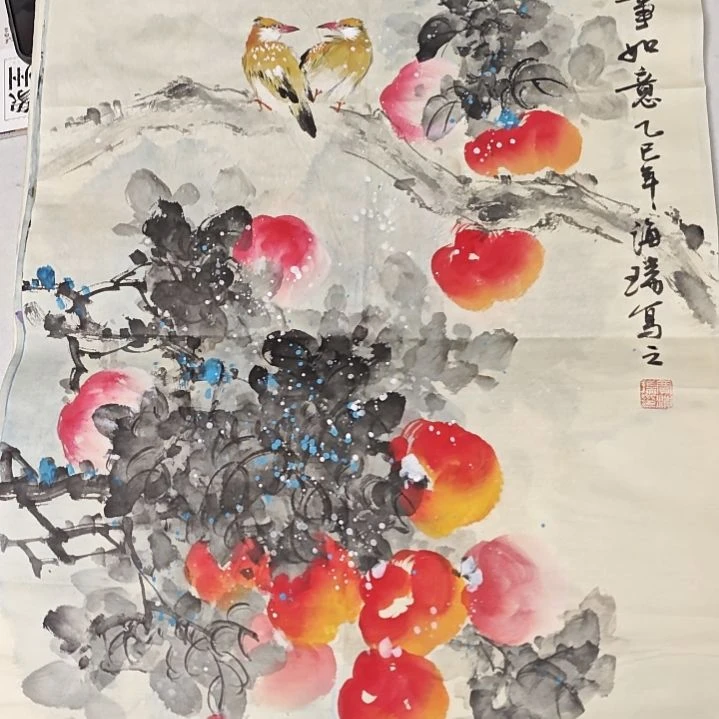 事如意乙巳年海瑞写之